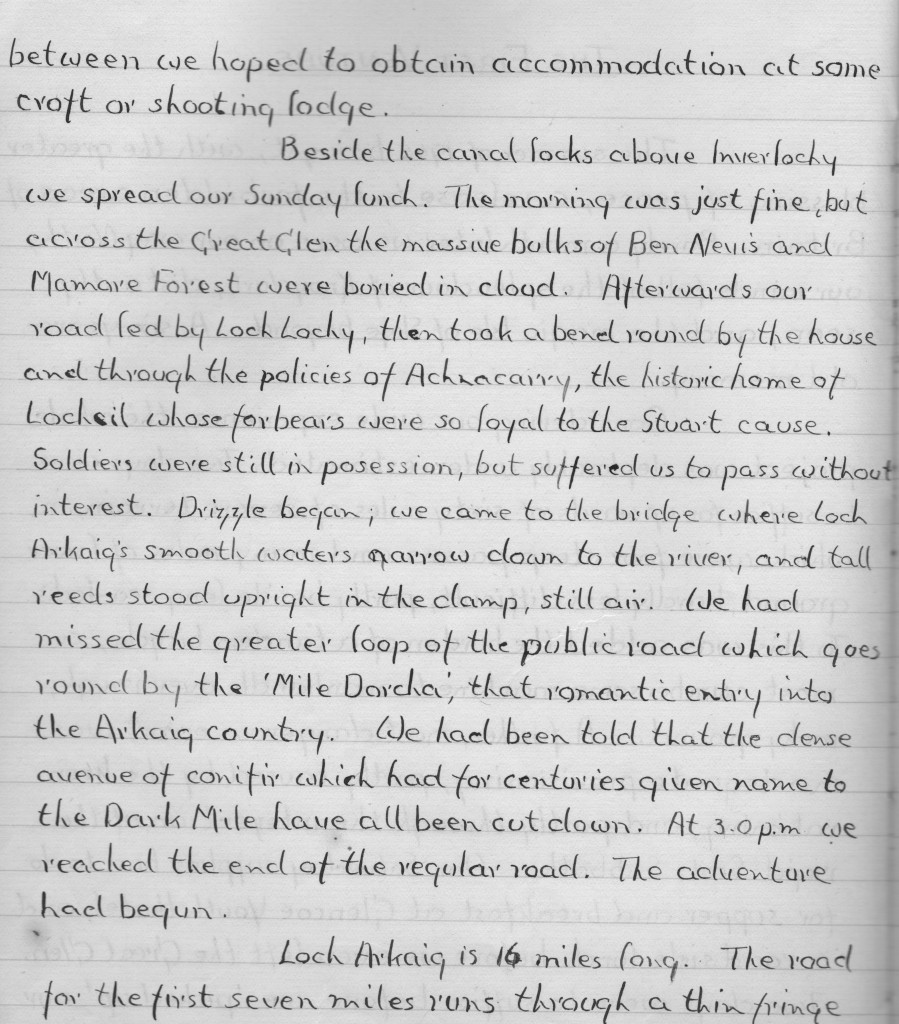 between we hoped to obtain accommodation at some
croft or shooting lodge.
Beside the canal locks above Inverlochy
we spread our Sunday lunch. The morning was just fine, but
across the Great Glen the massive bulks of Ben Nevis and
Mamore Forest were buried in cloud. Afterwards our
road led by Loch Lochy, then took a bend round by the house
and through the policies of Achnacarry, the historic home of
Locheil whose forbears were so loyal to the Stuart cause.
Soldiers were still in posession, but suffered us to pass without
interest. Drizzle began; we came to the bridge where Loch
Arkaig's smooth waters narrow down to the river, and tall
reeds stood upright in the damp, still air. We had
missed the greater loop of the public road which goes
round by the 'Mile Dorcha', that romantic entry into
the Arkaig country. We had been told that the dense
avenue of conifir which had for centuries given name to
the Dark Mile have all been cut down. At 3.0 p.m we
reached the end of the regular road. The adventure
had begun.
Loch Arkaig is 16 miles long. The road
for the first seven miles runs through a thin fringe